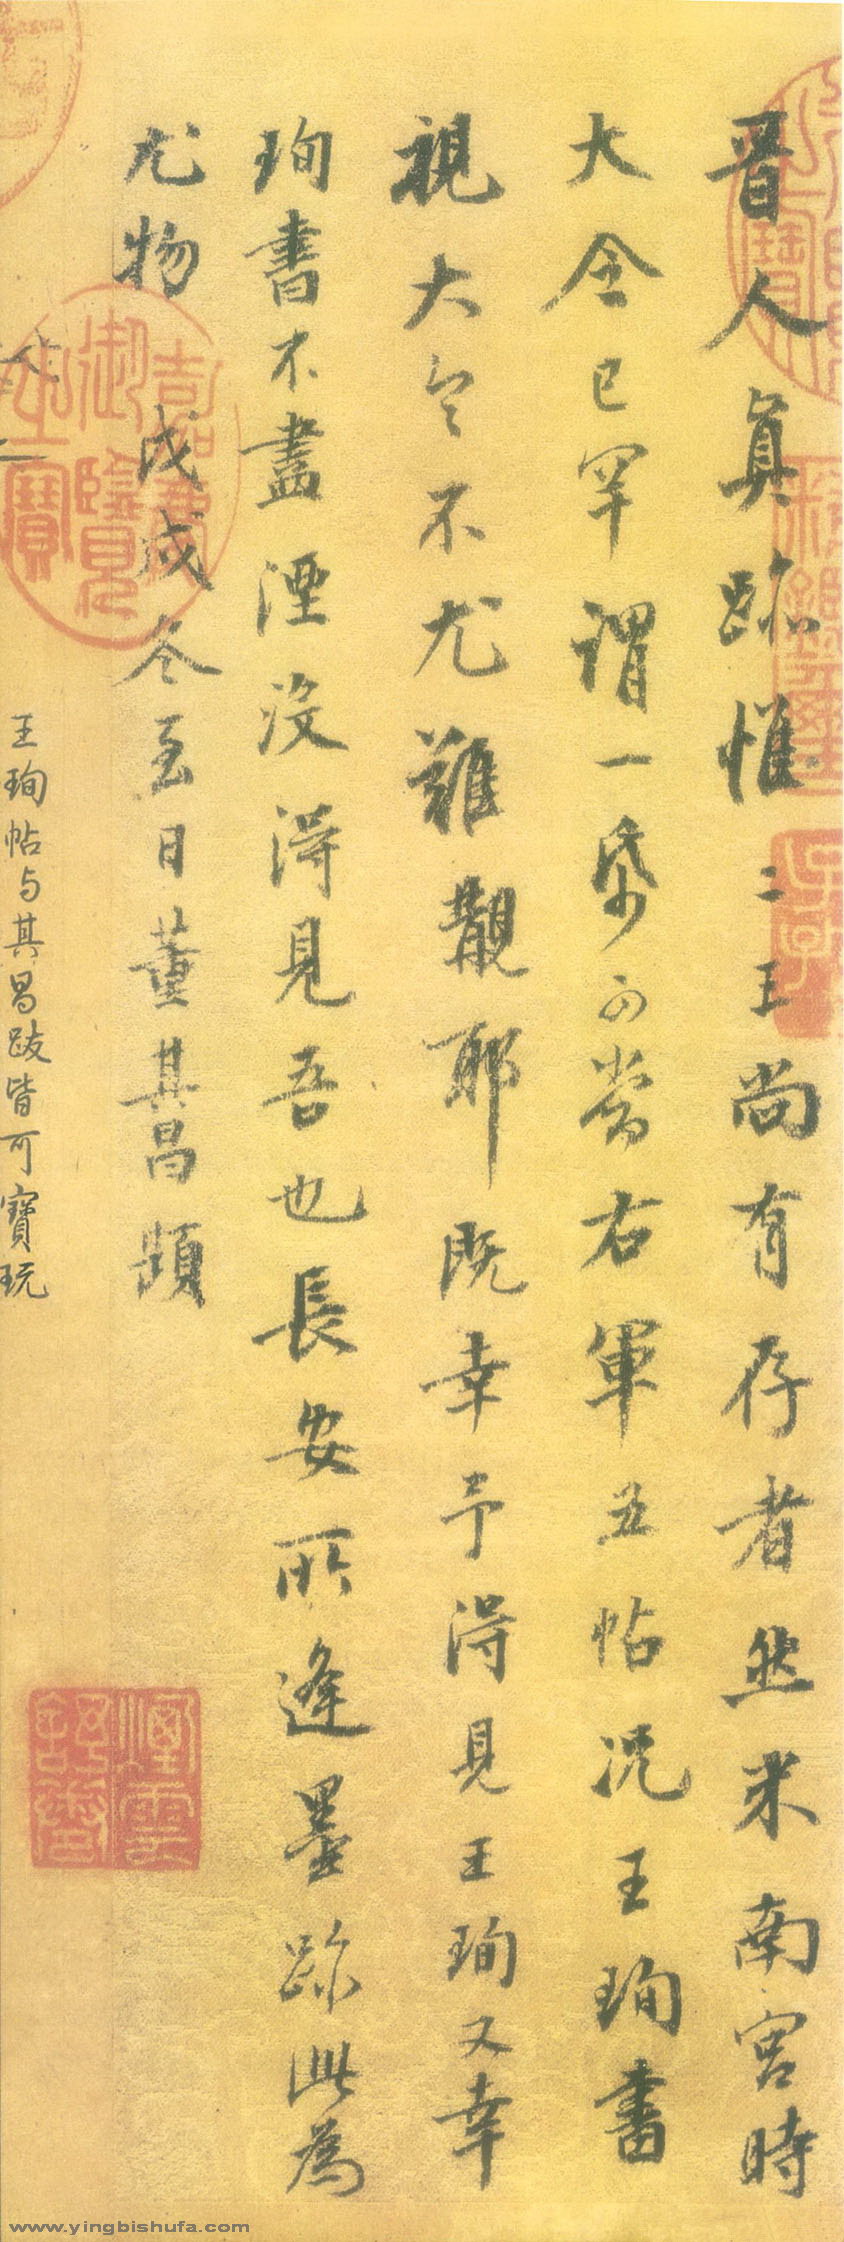 晉人眞跡惟二王尚有存者然米南宮時
大令已罕謂一帋可當右軍五帖况王珣書
視大令不尤難覯耶既幸予得見王珣又幸
珣書不盡湮沒得見吾也長安所逢墨跡此為
尤物 戊戌冬至日董其昌題
嘉慶御覽之寶
王珣帖与其昌跋皆可寶玩
www.yingbishufa.com